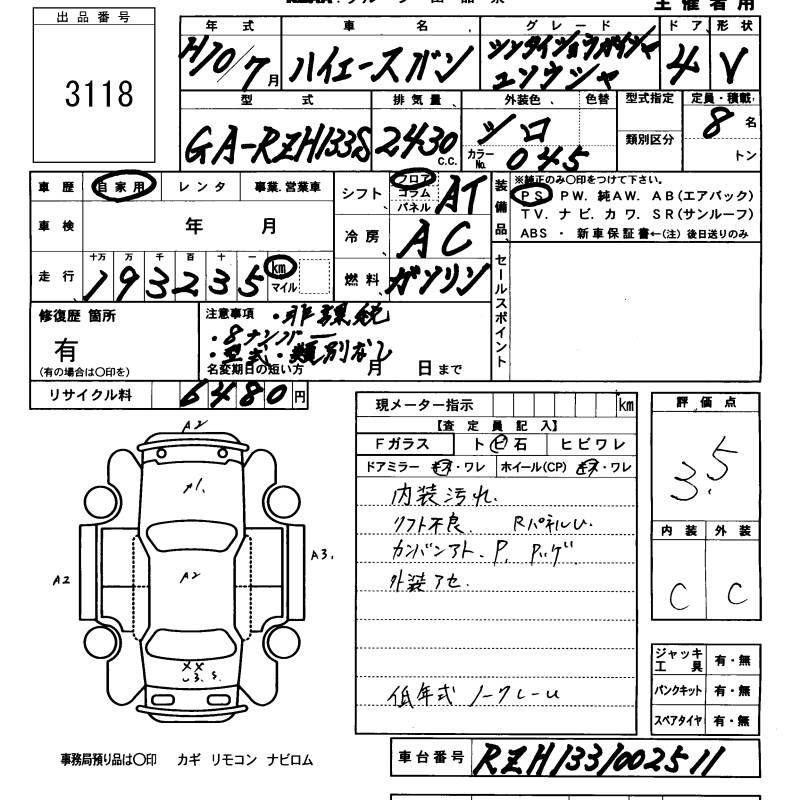 主催者用
出品番号
3118
年式 車名 グレード ドア 形状
H10/7月 ハイエースバン シンタイショウガイシャ ユソウシャ 4 V
型式 排気量 外装色 色替 型式指定 定員・積載
GA-RZH133S 2430 C.C. シロ 8名
カラーNo. 045 類別区分 トン
車歴 自家用 レンタ 事業.営業車
車検 年 月
走行 十万 万 千 百 十 一
193235 km マイル
シフト フロア コラム パネル AT
冷房 AC
燃料 ガソリン
装備品 ※純正のみ〇印をつけて下さい。
PS PW. 純AW. AB(エアバック)
TV. ナビ. カワ. SR(サンルーフ)
ABS ・ 新車保証書←(注)後日送りのみ
セールスポイント
修復歴 箇所
有
(有の場合は〇印を)
注意事項 ・非課税
・8ナンバー
・型式・類別なし
名変期日の短い方 月 日まで
リサイクル料 6480円
現メーター指示 km
【査定員記入】
Fガラス ト ビ 石 ヒビワレ
ドアミラー キズ・ワレ ホイール(CP) キズ・ワレ
内装汚れ
リフト不良. RパネルU
カンバンアト. P.
外装アセ.
低年式 ノークレーム
評価点
3.5
内装 外装
C C
ジャッキ工具 有・無
パンクキット 有・無
スペアタイヤ 有・無
車台番号 RZH1331002511
A2
A1.
A2
A2
A3.
XX
事務局預り品は〇印 カギ リモコン ナビロム